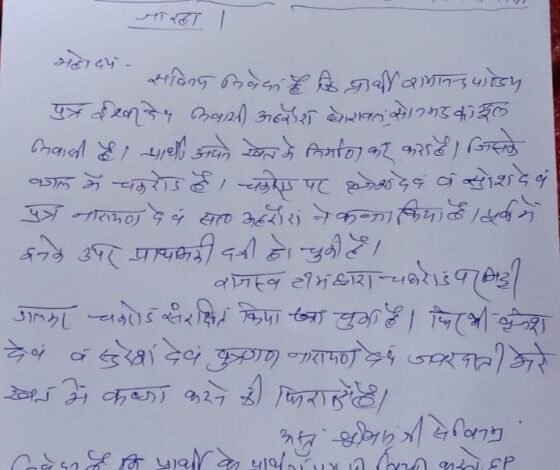 जा रहा।
महोदय -
सविनय निवेदन है कि प्रार्थी रामानन्द पाण्डेय
पुत्र निवासी अहरौरा घोरावल, सोनभद्र का मूल
निवासी है। प्रार्थी अपने खेत में निर्माण कार्य करा रहा है। जिसके
बगल में चकरोड है। चकरोड पर देव व सुरेश देव
पुत्र नारायण देव सा० अहरौरा ने कब्जा किया है। पूर्व में
इनके उपर प्राथमिकी दर्ज हो चुकी है।
राजस्व टीम द्वारा चकरोड पर मिट्टी
डालकर चकरोड संरक्षित किया जा चुका है। फिर भी
देव व सुरेश देव पुत्रगण नारायण देव जबरदस्ती मेरे
खेत में कब्जा करने की फिराक में है।
अस्तु श्रीमान जी से विनम्र
निवेदन है कि प्रार्थी के प्रार्थना पत्र